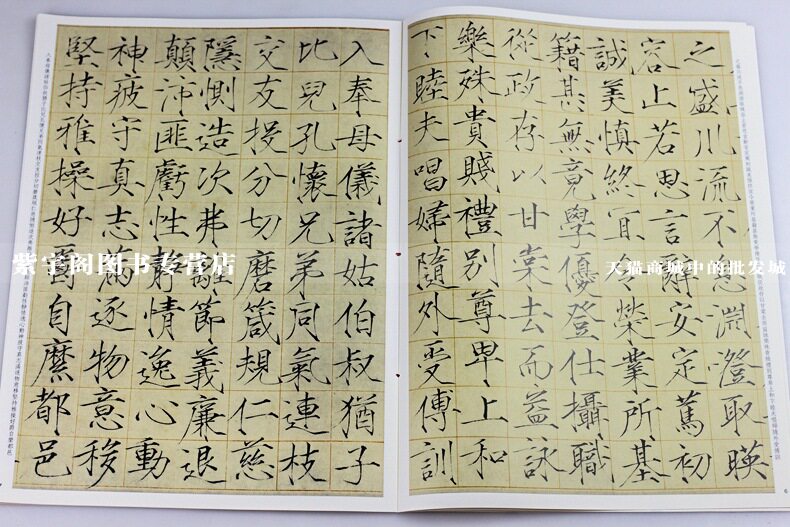 之盛川流不息淵澄取暎
容止若思言辭安定篤初
誠美慎終宜令榮業所基
籍甚無竟學優登仕攝職
從政存以甘棠去而益詠
樂殊貴賤禮別尊卑上和
下睦夫唱婦隨外受傅訓
入奉母儀諸姑伯叔猶子
比兒孔懷兄弟同氣連枝
交友投分切磨箴規仁慈
隱惻造次弗離節義廉退
顛沛匪虧性靜情逸心動
神疲守真志滿逐物意移
堅持雅操好爵自縻都邑
紫宇阁图书专营店
天猫商城中的批发城
6